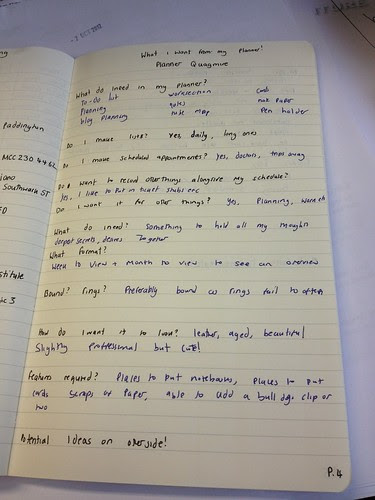 ng
Paddington
MCC230 4462
iano
Southwark St
ED
stitute
ic 3
What I want from my Planner!
Planner Quagmire
What do I need in my planner?
To-Do list worksection Cards
Planning notes note paper
blog planning tube map Pen holder
Do I make lists? Yes, daily, long ones
Do I make scheduled appointments? Yes, doctors, trips away
Do I want to record other things alongside my schedule?
Yes, I like to put in ticket stubs etc
Do I want it for other things? Yes, Planning,
What do I need? Something to hold all my thoughts
deepest secrets, desires together
What format?
Week to view + month to view to see an overview
Bound? rings? Preferably bound as rings fail to often
How do I want it to look? leather, aged, beautiful
Slightly Professional but cute!
Features required? Places to put notebooks, places to put
cards scraps of paper, able to add a bulldog clip or
two
Potential ideas on overside!
P.4